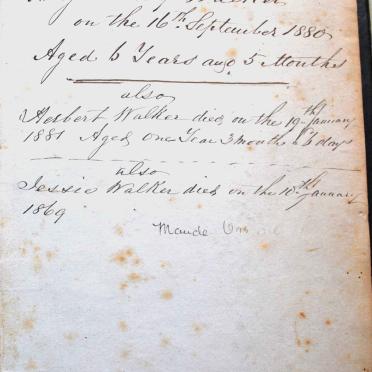 Walker
on the 16th September 1880
Aged 6 Years and 5 Months
also
Herbert Walker died on the 19th January
1881 Aged One Year 3 months & 3 days
also
Jessie Walker died on the 10th January
1869
Maude